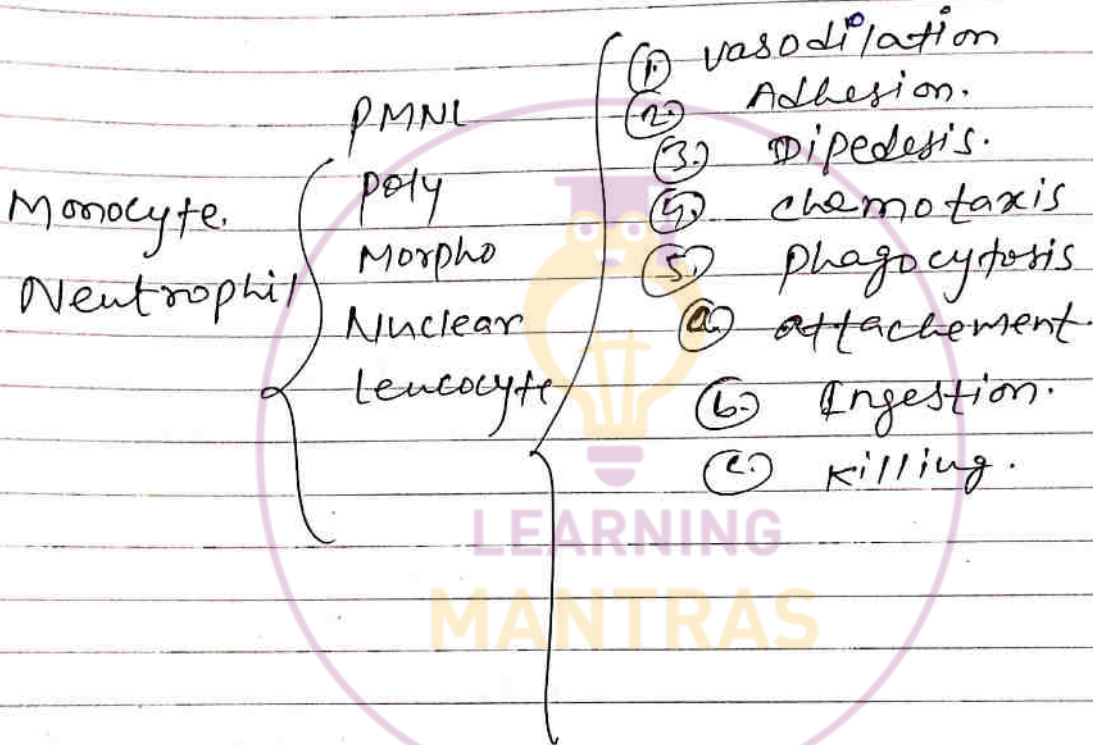 Monocyte.
Neutrophil
PMNL
Poly
Morpho
Nuclear
Leucocyte
1. vasodilation
2. Adhesion.
3. Dipedesis.
4. chemotaxis
5. phagocytosis
a. attachement.
b. Ingestion.
c. Killing.
LEARNING
MANTRAS